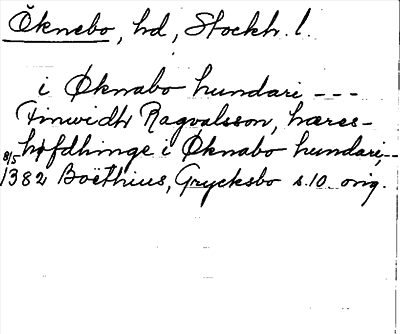 Öknebo, hd, Stockh. l.
i Øknabo hundari ---
Finwidh Ragvalsson, hæres-
høfdhinge i Øknabo hundari,--
8/5 1382 Boëthius, Grycksbo s. 10 orig.